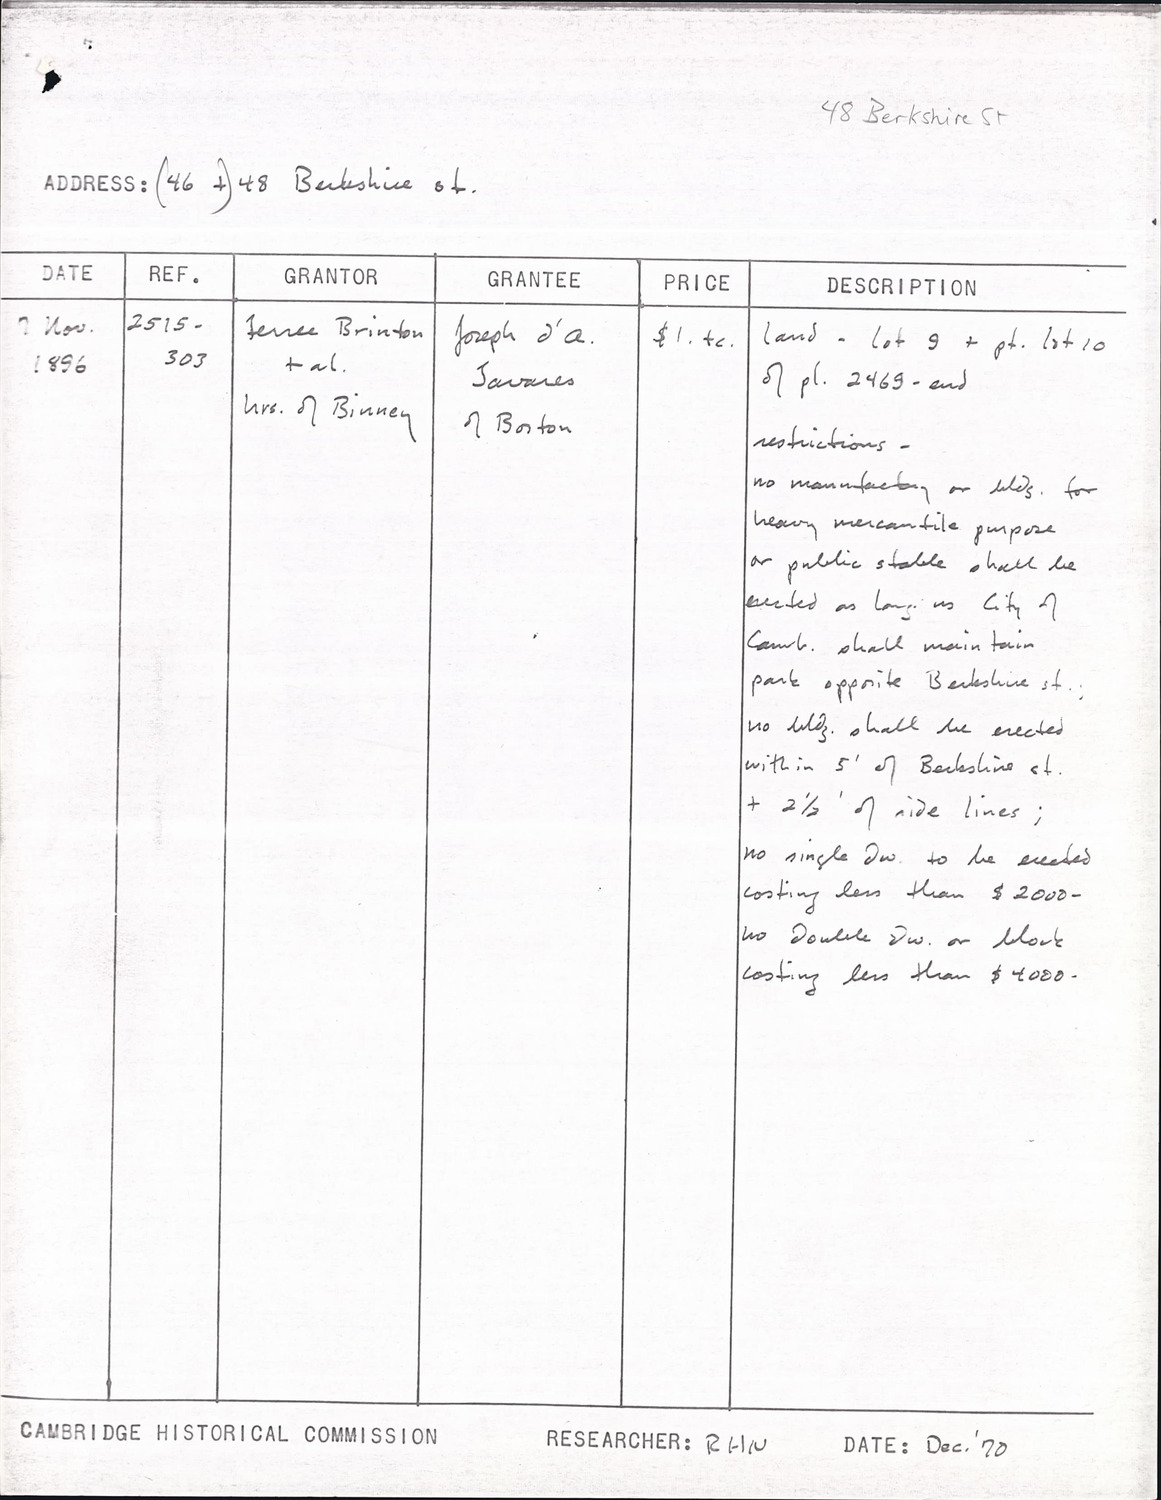 48 Berkshire St
ADDRESS: (46 +) 48 Berkshire st.
DATE REF. GRANTOR GRANTEE PRICE DESCRIPTION
Nov. 1896
2515-303
Brinton
+ al.
hrs. of Binney
Joseph d'A.
Tavares
of Boston
$1. tc.
land - lot 9 + pt. lot 10
of pl. 2469-end
restrictions -
no manufactory or bldg. for
heavy mercantile purpose
or public stable shall be
erected as long as City of
Camb. shall maintain
park opposite Berkshire st.;
no bldg. shall be erected
within 5' of Berkshire st.
+ 2½' of side lines;
no single Dw. to be erected
costing less than $2000-
no Double Dw. or block
costing less than $4000-
CAMBRIDGE HISTORICAL COMMISSION RESEARCHER: RHN DATE: Dec. '70